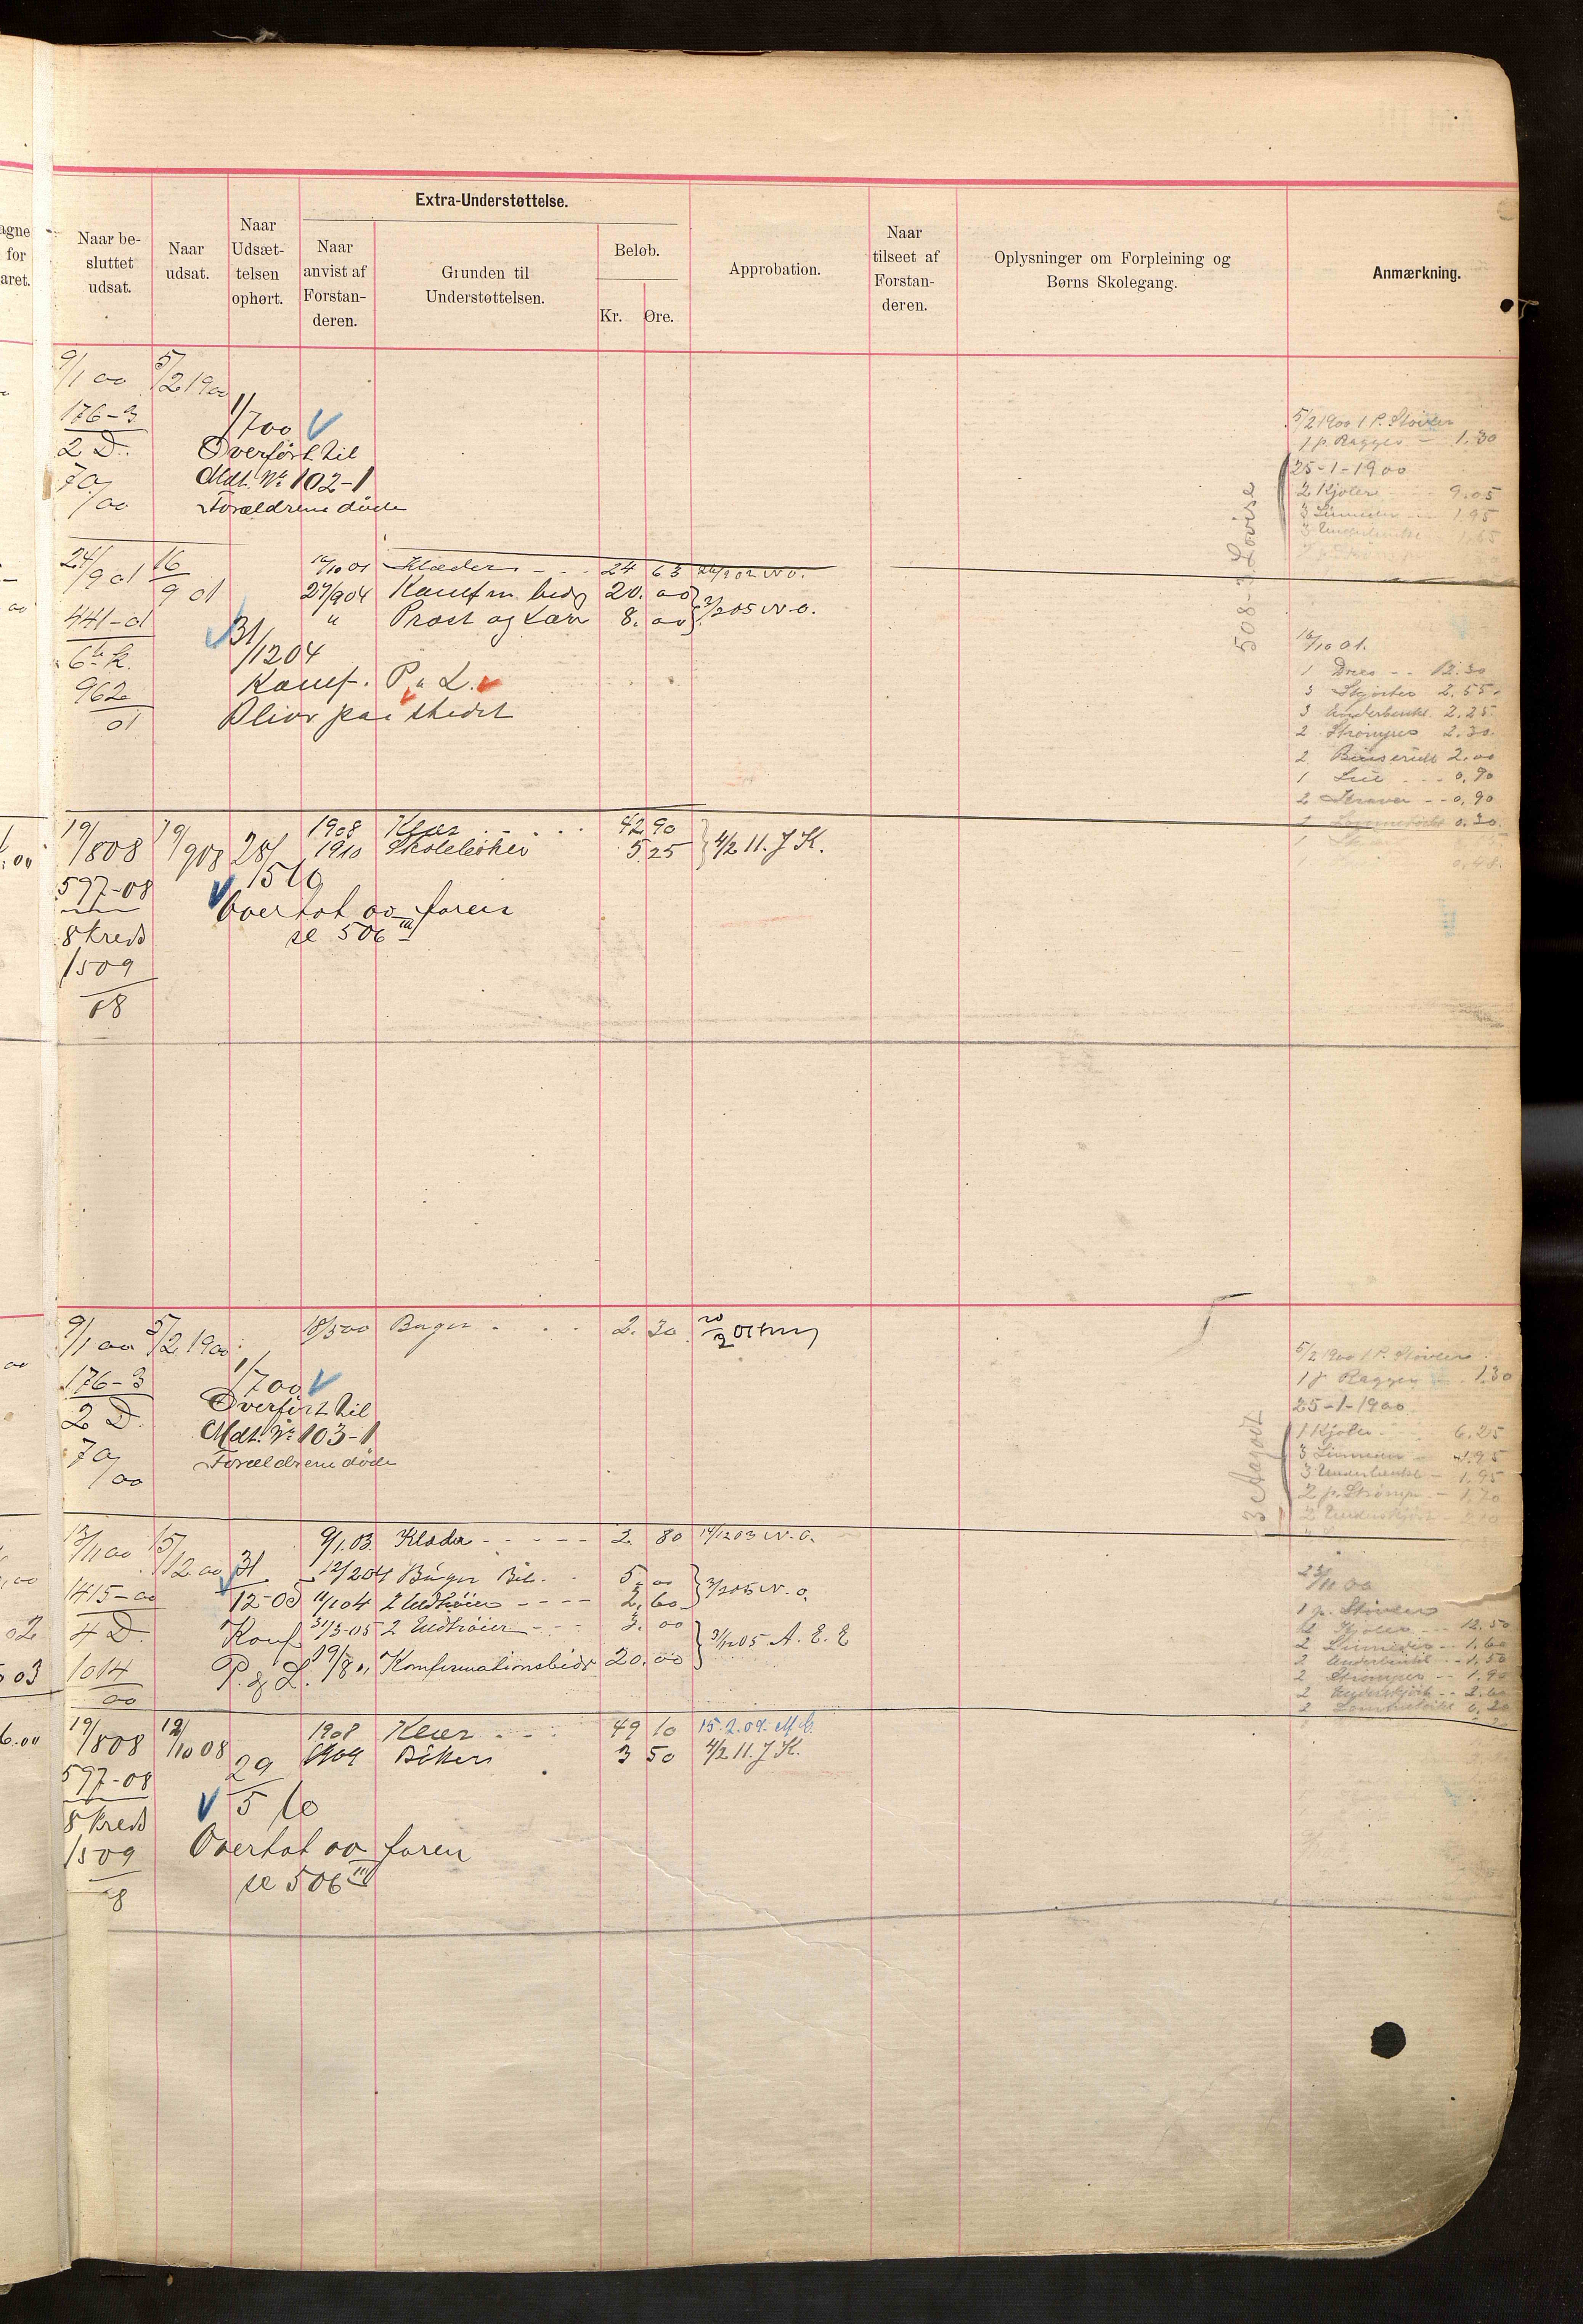 Extra-Understøttelse.
Naar be-
sluttet
udsat.
Naar
udsat.
Naar
Udsæt-
telsen
ophørt.
Naar
anvist af
Forstan-
deren.
Grunden til
Understøttelsen.
Beløb.
Kr. Øre.
Approbation.
Naar
tilseet af
Forstan-
deren.
Oplysninger om Forpleining og
Børns Skolegang.
Anmærkning.
agne
for
aret.
9/1 00 5/2 1900
176-3 1/7 00
2 D. Overført til
70/00 Mdt. Nr 102-1
Forældrene døde
5/2 1900 1 P. Støvler
1 p. Ragger - 1.30
25-1-1900
2 Kjoler 9.05
3 1.95
3 1.65
508-3 Lovise
24/9 01 16/9 01 16/10 01 Klæder - - - 24 63
27/9 04 Konfm. bidr 20. 00
" Præst og Lær 8. 00 3/2 05 N.O.
441-01
31/12 04
6te K. Konf. P. " L.
962/01 Bliver paa stedet
16/10 01.
1 Dres - - 12.30
3 Skjorter 2.55
3 Underbenkl. 2.25
2 Strømper 2.30
2 2.00
1 Lue 0.90
2 - - 0.90
0.30
0.48
19/8 08 19/9 08 28/5 10 1908 Klær 42 90
1910 Skolebøker 5 25 4/2 11. J K.
597-08
Overtat av faren
8 Kreds se 506 III
1509/08
9/1 00 5/2 1900 18/5 00 Bøger . . . 2. 30
176-3 1/7 00
2 D. Overført til
70/00 Mdt. Nr 103-1
Forældrene døde
5/2 1900 1 P. Støvler
1 p. Ragger 1.30
25-1-1900
1 Kjoler 6.25
3 1.95
3 Underbenkl - 1.95
2 p. Strømp - 1.70
3 Aagot
13/11 00 15/12 00 9/1.03. Klæder - - - - - 2. 80 14/12 03 N.O.
31/12-05 12/2 04 Bøger 5. 00
1415-00 11/1 04 2 Undtrøier - - - - 2. 60 3/2 05 N.O.
4 D. Konf 31/3-05 2 Undtrøier - - - 3. 00
1014/00 P. og L. Konfirmationsbidr 20. 00 A. E. E
23/11 00
1 p. Støvler
Kjoler - - - 12.50
2 - - 1.60
2 Underbenkl - - 1.50
2 Strømper - - 1.90
2 Underskjørt - - 2.60
2 0.20
19/8 08 12/10 08 1908 Klær 49 10 15.2.09.
29/5 10 1909 Bøker 3 50 4/2 11. J K.
597-08
8 Kreds Overtat av faren
1509/08 se 506 III